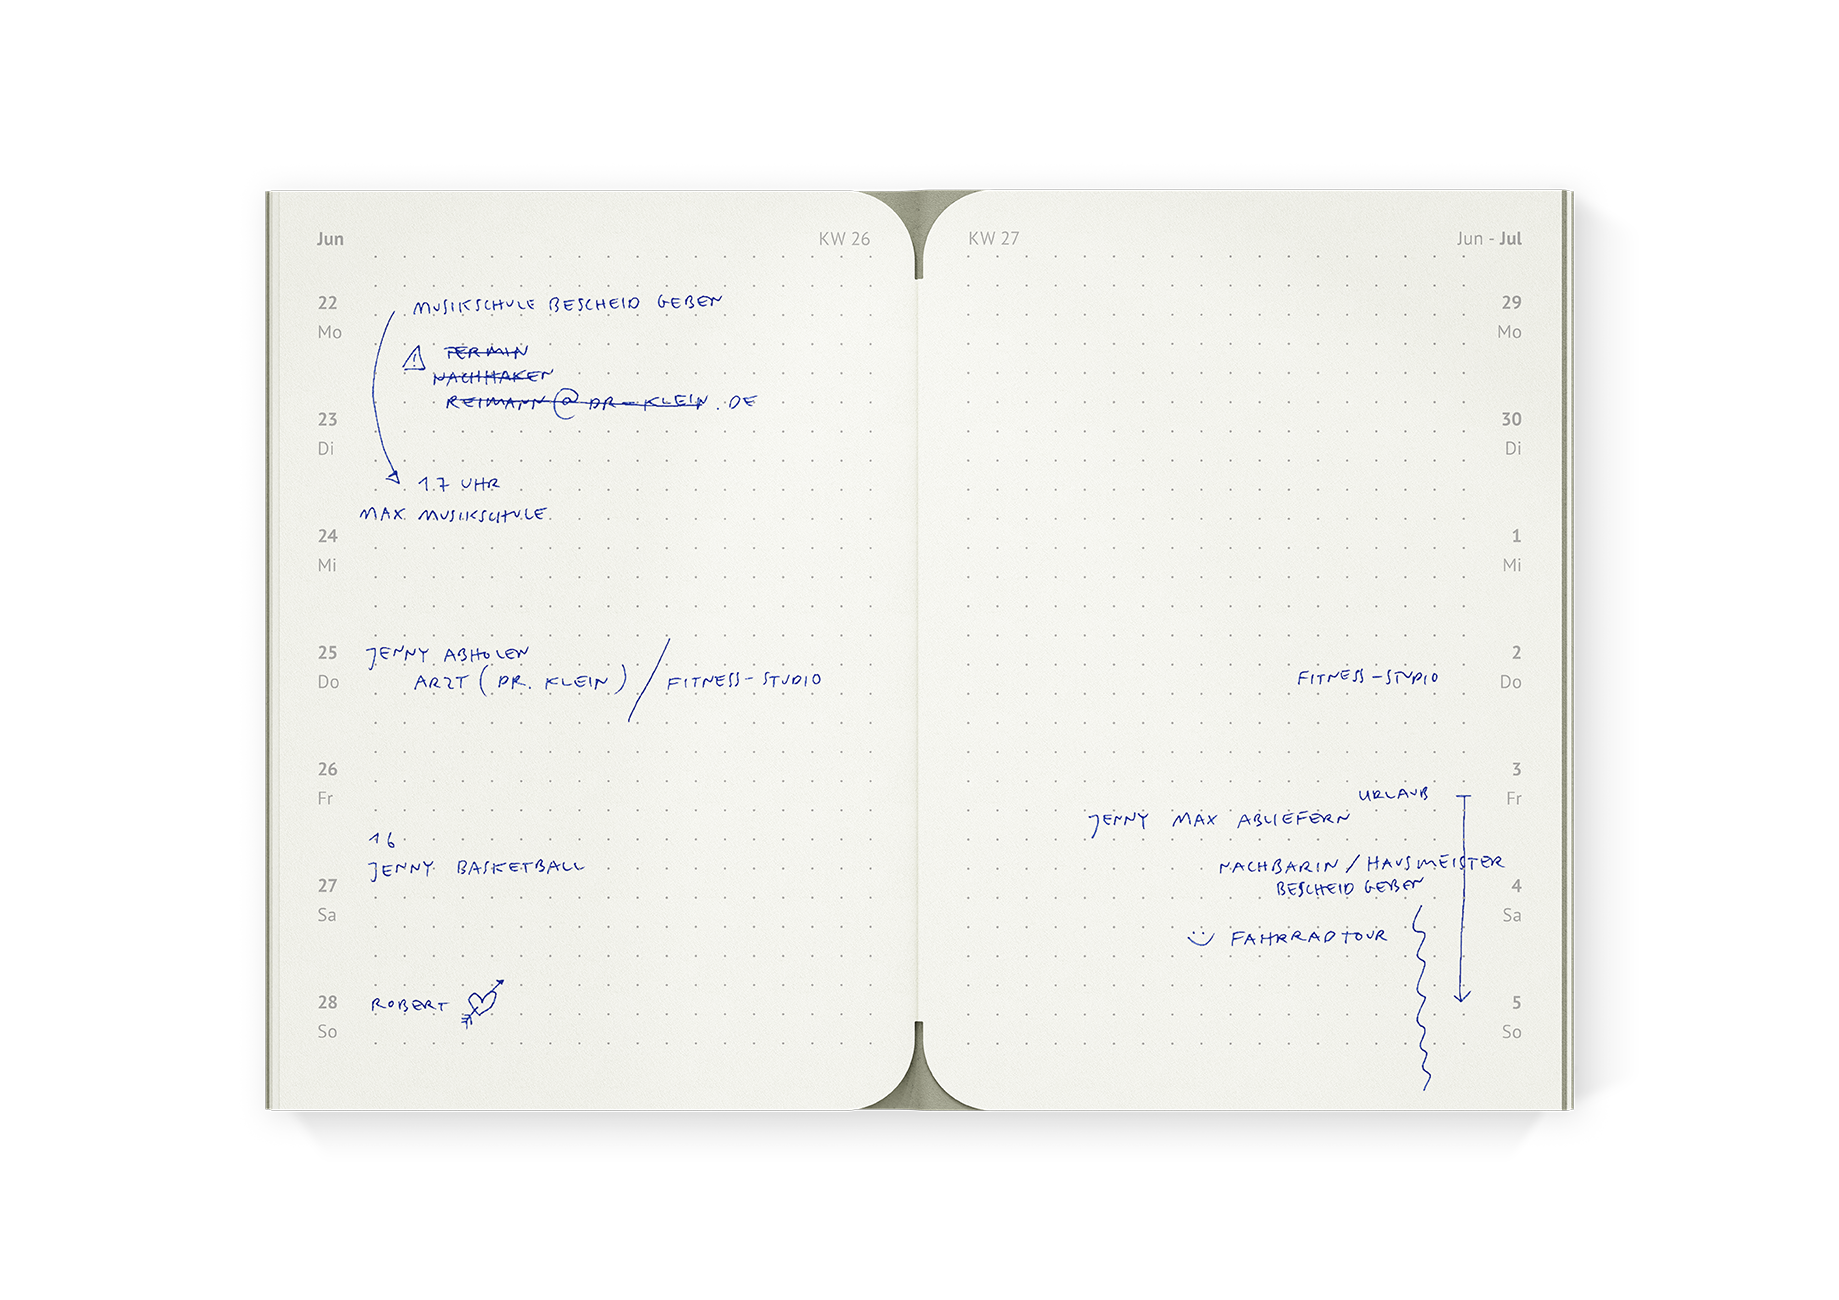 Jun KW 26
22
Mo
MUSIKSCHULE BESCHEID GEBEN
TERMIN
NACHHAKEN
REIMANN@DR-KLEIN.DE
23
Di
17 UHR
MAX MUSIKSCHULE
24
Mi
25
Do
JENNY ABHOLEN
ARZT (DR. KLEIN) / FITNESS-STUDIO
26
Fr
16
JENNY BASKETBALL
27
Sa
28
So
ROBERT
KW 27 Jun - Jul
29
Mo
30
Di
1
Mi
2
Do
FITNESS-STUDIO
3
Fr
URLAUB
JENNY MAX ABLIEFERN
NACHBARIN / HAUSMEISTER
BESCHEID GEBEN
4
Sa
FAHRRADTOUR
5
So